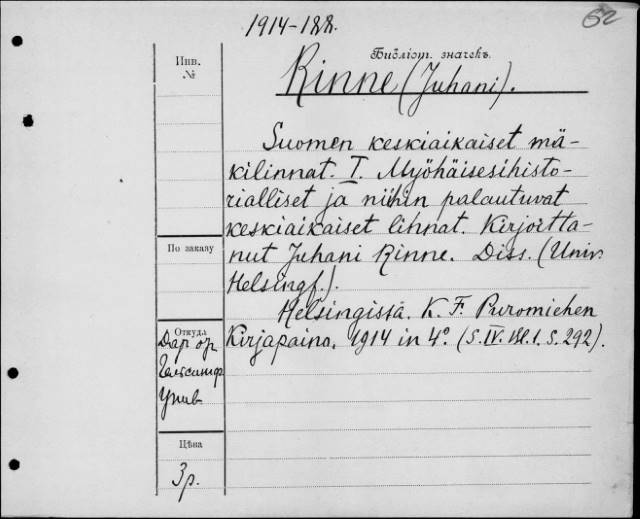 1914-188.
52
Инв.
№
Библіот. значекъ.
Rinne (Juhani).
Suomen keskiaikaiset mä-
kilinnat. I. Myöhäisesihisto-
rialliset ja niihin palautuvat
keskiaikaiset linnat. Kirjoitta-
nut Juhani Rinne. Diss. (Univ.
Helsingf.).
Helsingissä. K. F. Puromiehen
Kirjapaino. 1914 in 4º. (S. IV. Bl. 1. S. 292).
По заказу
Откуда
Дар от
Гельсингф.
Унив.
Цѣна
3р.